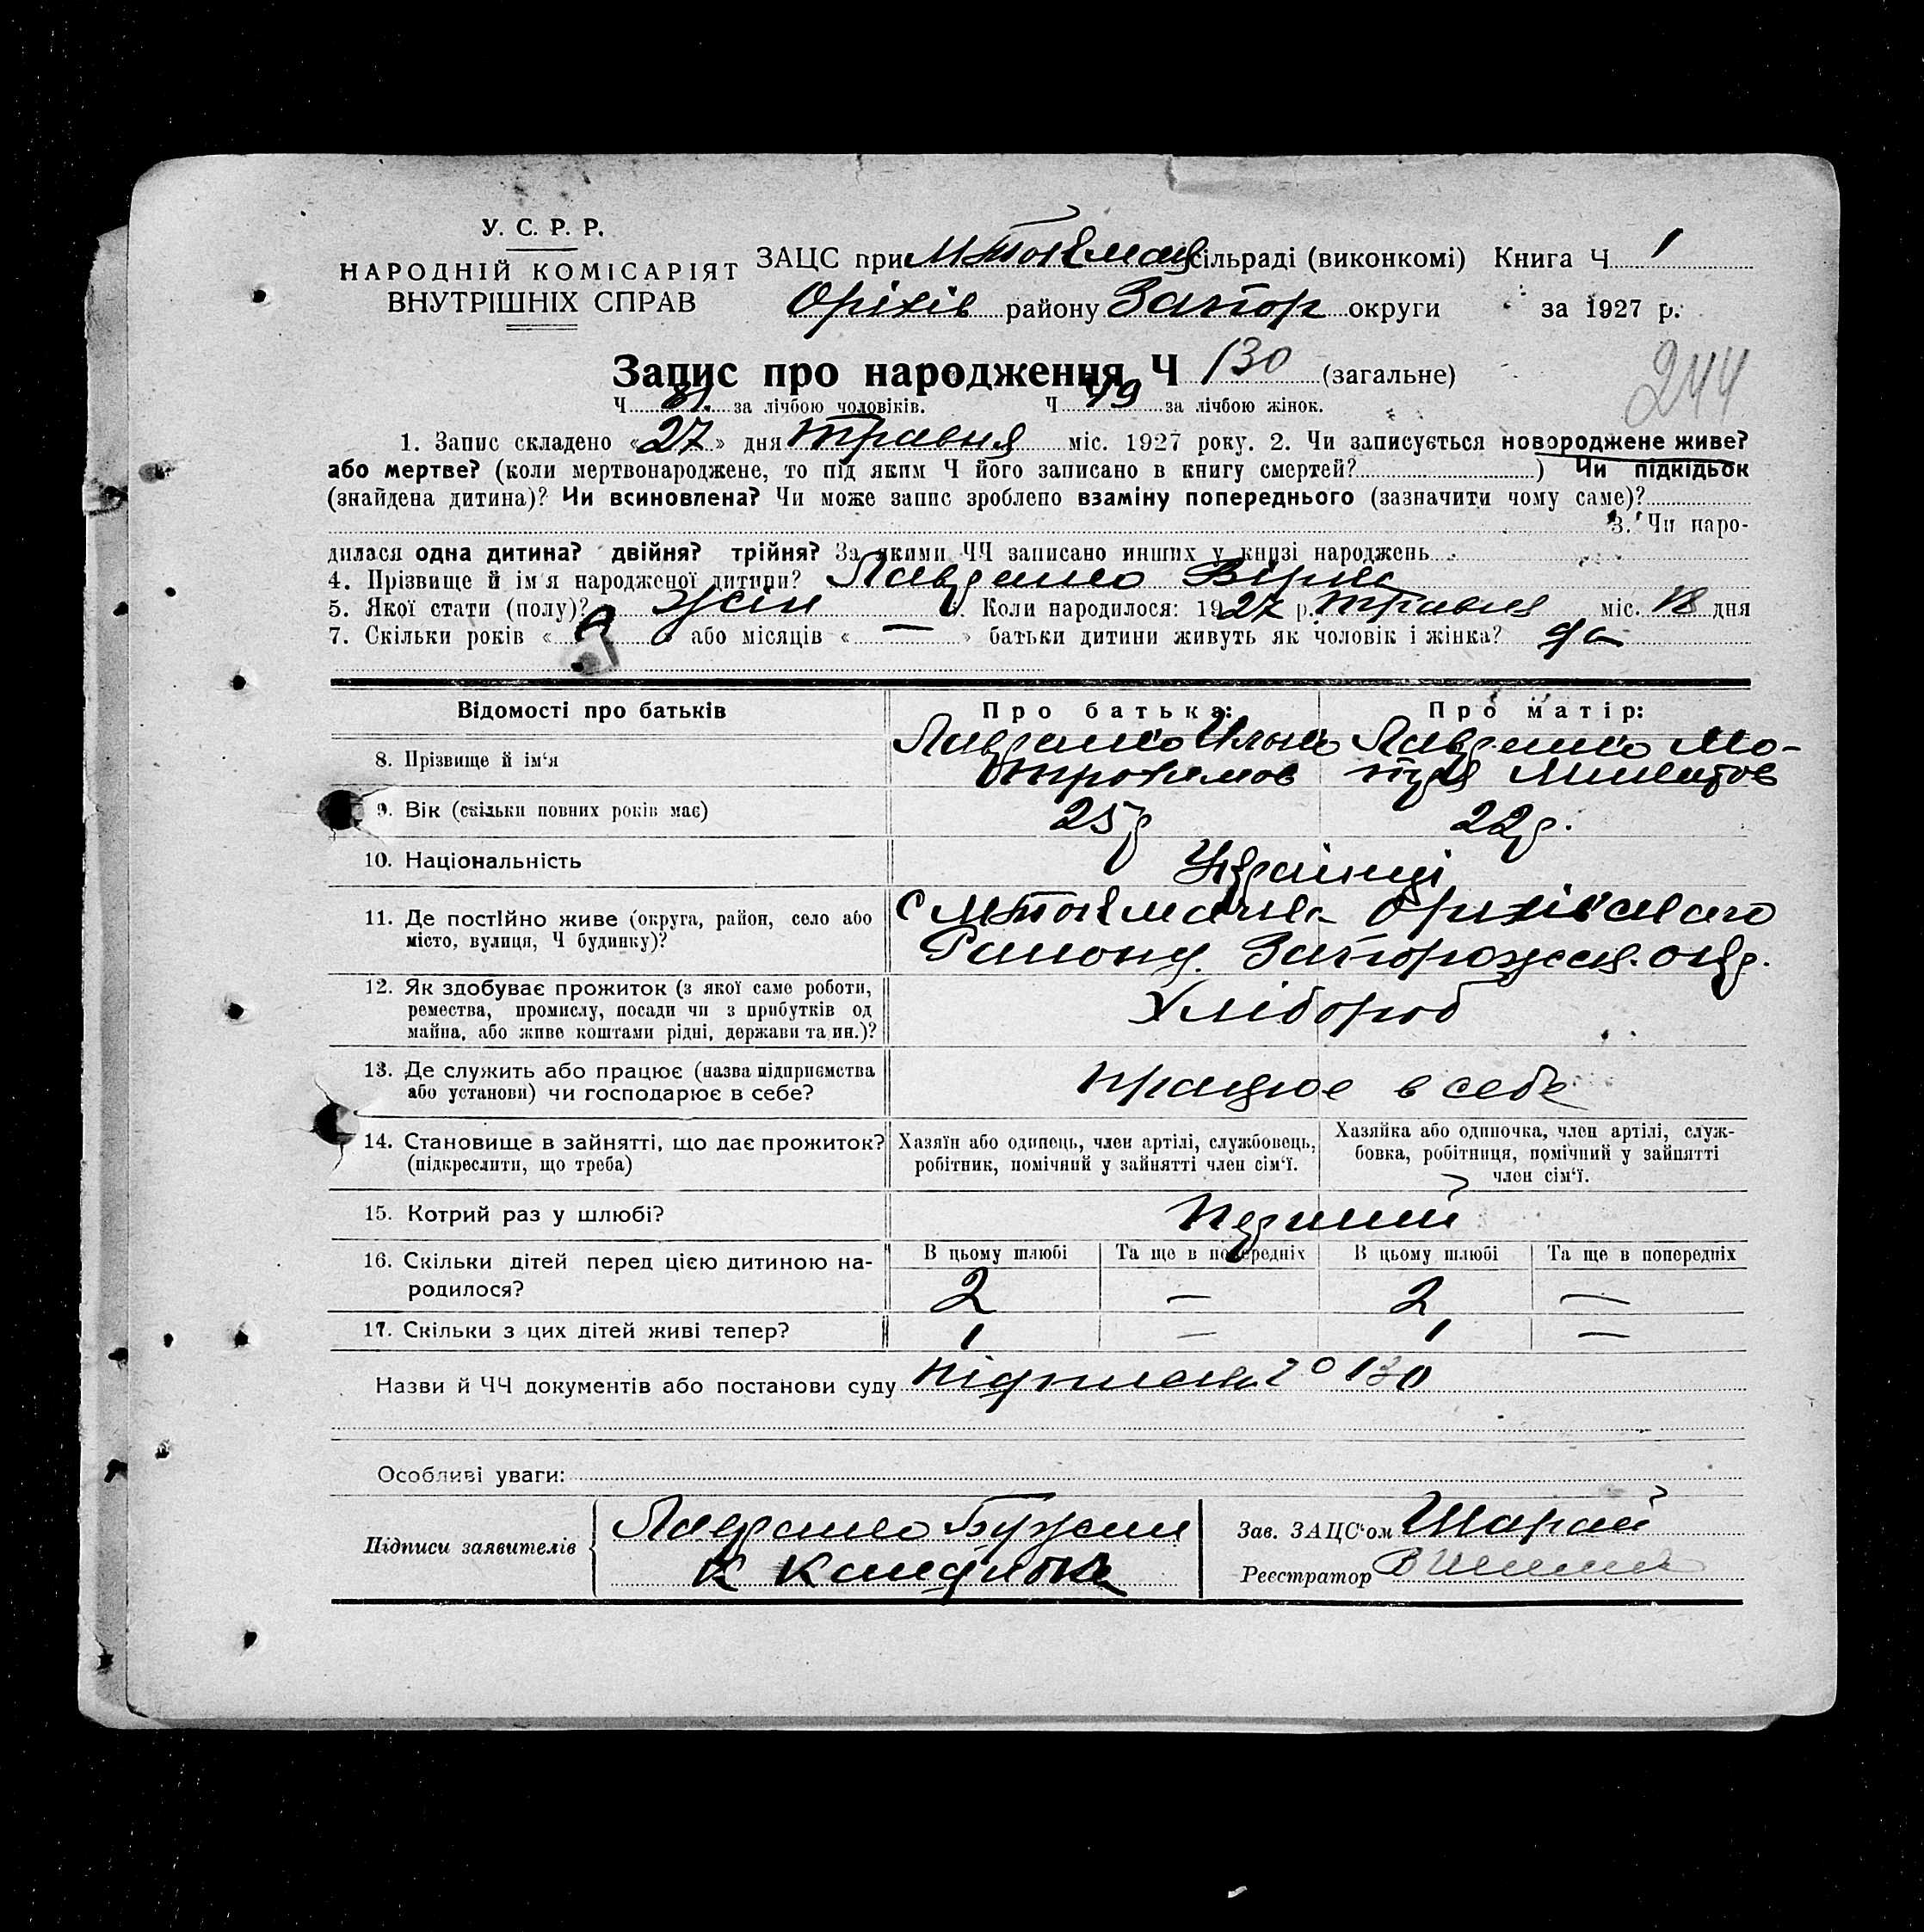 У. С. Р. Р.
НАРОДНІЙ КОМІСАРІЯТ
ВНУТРІШНІХ СПРАВ
ЗАЦС при М Токмац сільраді (виконкомі) Книга Ч 1
Оріхів району Запор округи за 1927 р.
Запис про народження Ч 130 (загальне)
244
Ч 81. за лічбою чоловіків. Ч 49 за лічбою жінок.
1. Запис складено «27» дня травня міс. 1927 року. 2. Чи записується новороджене живе?
або мертве? (коли мертвонароджене, то під яким Ч його записано в книгу смертей? ) Чи підкідьок
(знайдена дитина)? Чи всиновлена? Чи може запис зроблено взаміну попереднього (зазначити чому саме)?
3. Чи наро-
дилася одна дитина? двійня? трійня? За якими ЧЧ записано инших у книзі народжень
4. Прізвище й ім'я народженої дитини? Лавренко Віра
5. Якої стати (полу)? жін Коли народилося: 1927 р. травня міс. 18 дня
7. Скільки років « » або місяців « — » батьки дитини живуть як чоловік і жінка? да
Відомості про батьків Про батька: Про матір:
8. Прізвище й ім‘я Лавренко Илько Трохимов Лавренко Мо-
тря
9. Вік (скільки повних років має) 25р 22р.
10. Національність Українці
11. Де постійно живе (округа, район, село або
місто, вулиця, Ч будинку)?
С МТокмачка Оріхівського
Району. Запорожск. окр.
12. Як здобуває прожиток (з якої саме роботи,
ремества, промислу, посади чи з прибутків од
майна, або живе коштами рідні, держави та ин.)?
Хлібороб
13. Де служить або працює (назва підприємства
або установи) чи господарює в себе?
працює в себе
14. Становище в зайнятті, що дає прожиток?
(підкреслити, що треба)
Хазяїн або одинець, член артілі, службовець,
робітник, помічний у зайнятті член сім‘ї.
Хазяйка або одиночка, член артілі, служ-
бовка, робітниця, помічний у зайнятті
член сім‘ї.
15. Котрий раз у шлюбі? Перший
16. Скільки дітей перед цією дитиною на-
родилося?
В цьому шлюбі Та ще в попередніх В цьому шлюбі Та ще в попередніх
2 — 2 —
17. Скільки з цих дітей живі тепер? 1 — 1 —
Назви й ЧЧ документів або постанови суду 130
Особливі уваги:
Підписи заявителів Лавренко
Зав. ЗАЦС‘ом Шарай
Реєстратор